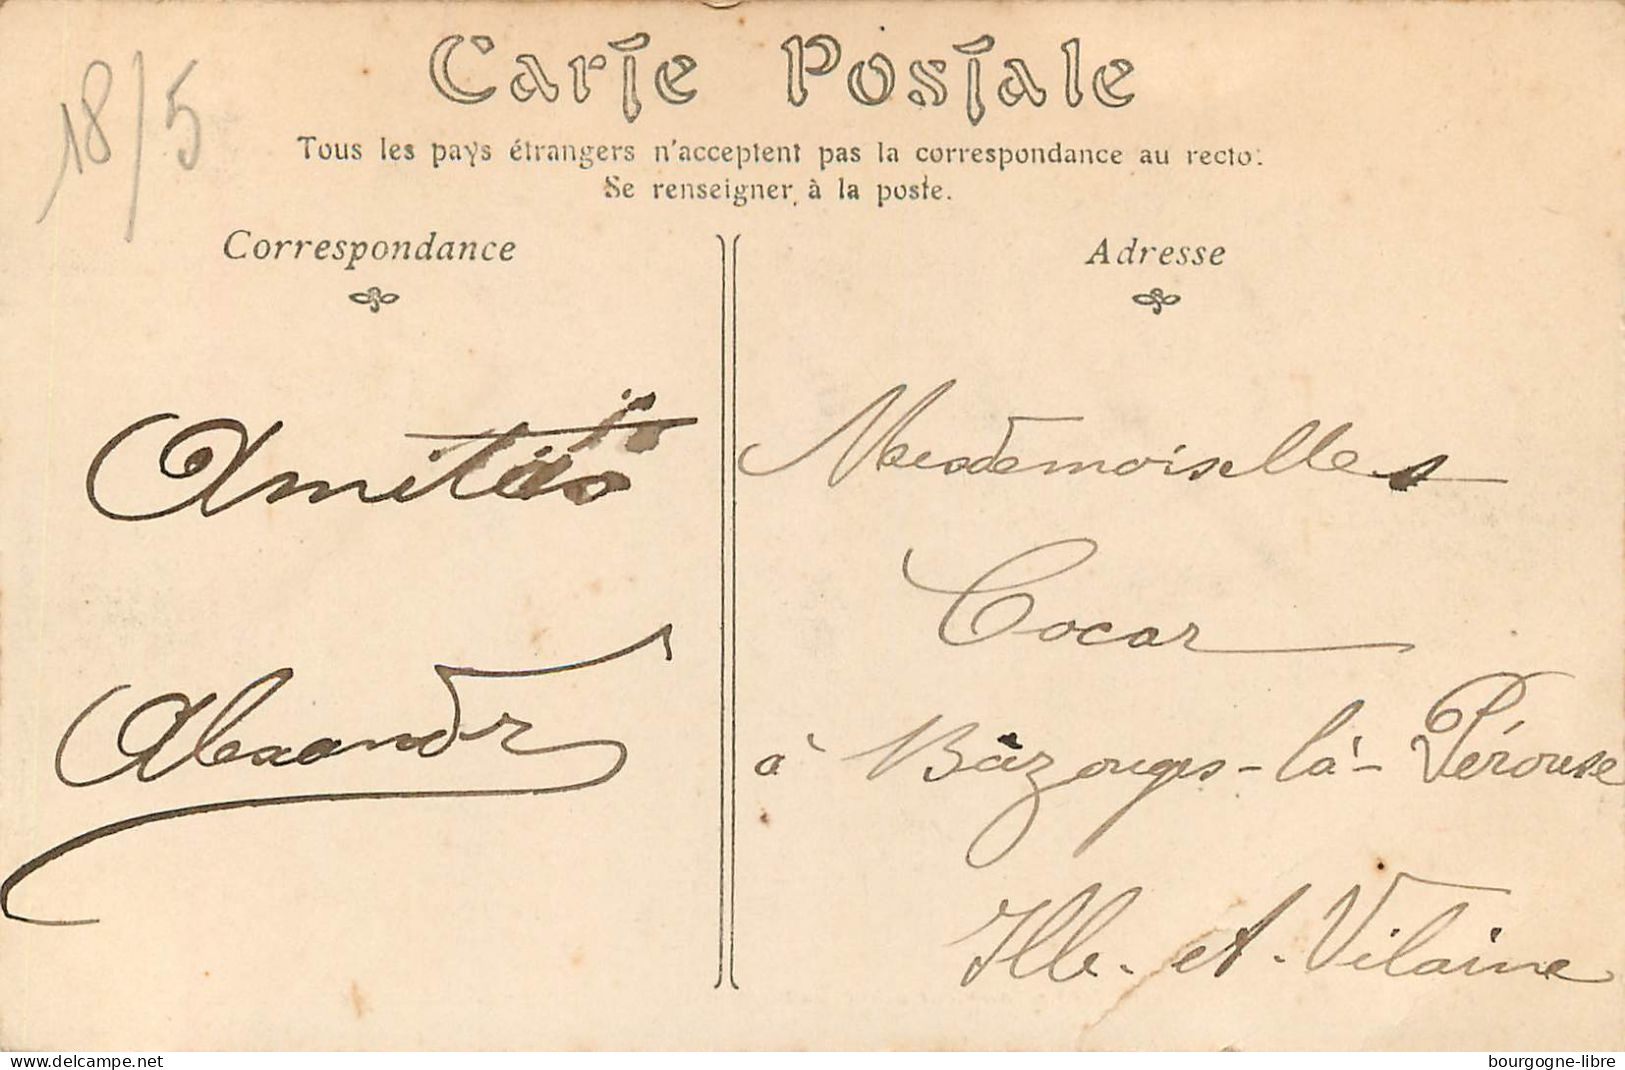 18/5
Carte Postale
Tous les pays étrangers n'acceptent pas la correspondance au recto.
Se renseigner à la poste.
Correspondance
Adresse
Amitiés
Alexandr
Mesdemoiselles
Cocar
à Bazouges-la-Pérouse
Ille-et-Vilaine
www.delcampe.net
bourgogne-libre